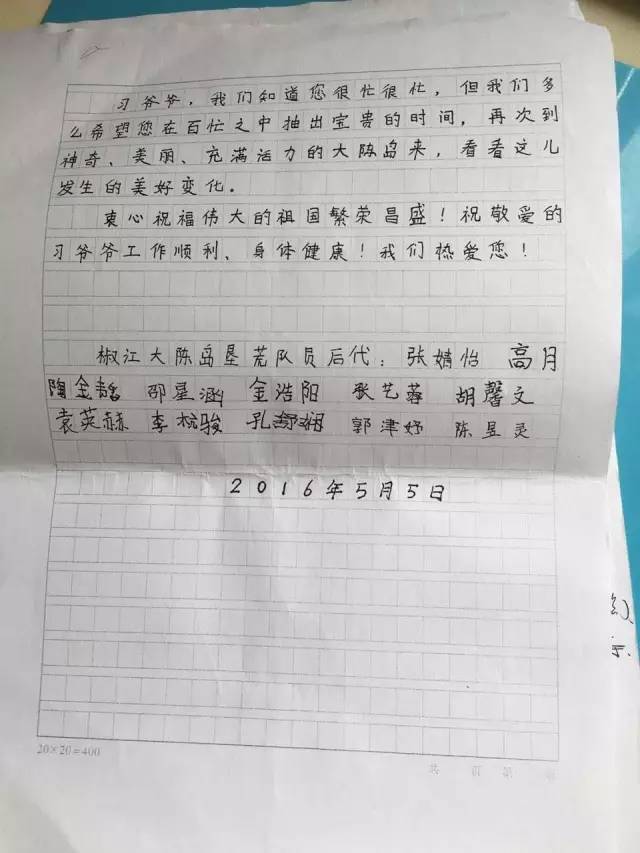 习爷爷，我们知道您很忙很忙，但我们多
么希望您在百忙之中抽出宝贵的时间，再次到
神奇、美丽、充满活力的大陈岛来，看看这儿
发生的美好变化。
衷心祝福伟大的祖国繁荣昌盛！祝敬爱的
习爷爷工作顺利、身体健康！我们热爱您！
椒江大陈岛垦荒队员后代：张婧怡 高月
陶金 邵星涵 金浩阳 张艺蓉 胡馨文
袁英赫 李杭骏 孔 郭津妤 陈昱灵
2016年5月5日
20×20=400
共 页 第 页